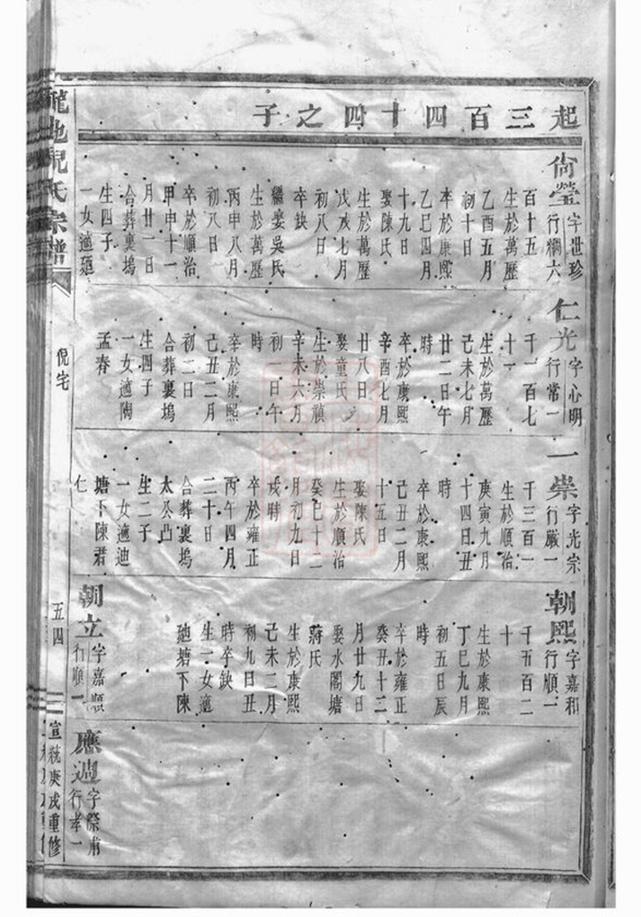 起三百四十四之子
尙瑩字世珍
行櫚六
百十五
生於萬歷
乙酉五月
初十日
卒於康熙
乙巳四月
十九日
娶陳氏
生於萬歷
戊戌七月
初八日
卒缺
繼娶吳氏
生於萬歷
丙申八月
初八日
卒於順治
甲申十一
月廿一日
合葬裏塢
生四子
一女適
仁光字心明
行常一
千一百七
十一
生於萬歷
己未七月
廿二日午
時
卒於康熙
辛酉七月
廿八日
娶童氏
生於崇禎
辛未六月
初一日午
時
卒於康熙
己丑二月
初二日
合葬裏塢
生四子
一女適陶
孟春
一崇字光宗
行嚴一
千三百一
生於順治
庚寅九月
十四日丑
時
卒於康熙
己丑二月
十五日
娶陳氏
生於順治
癸巳十二
月初九日
戌時
卒於雍正
丙午四月
二十日
合葬裏塢
太公凸
生二子
一女適迪
塘下陳君
仁
朝熙字嘉和
行順一
千五百二
十
生於康熙
丁巳九月
初五日辰
時
卒於雍正
癸丑十二
月廿九日
娶水閣塘
蔣氏
生於康熙
己未二月
初九日丑
時卒缺
生一女適
塘下陳
朝立字嘉順
行順一
應週字際甫
行孝一
龍池倪氏宗譜
倪宅
五四
宣統庚戌重修